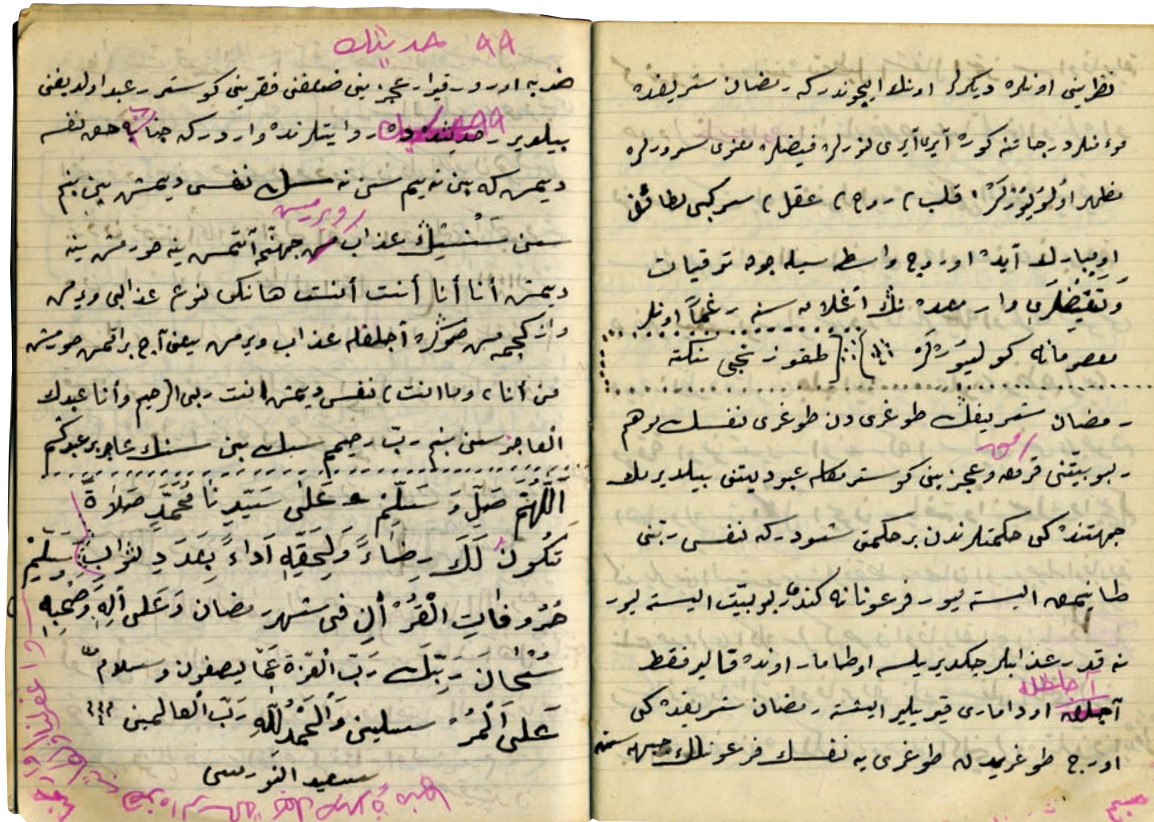 نظرینی اونلره دیكرلر اونلر ایچوندركه رمضان شریفده
مؤمنلر درجاتنه كوره آیری آیری نورلره فیضلره معنوی سرورلره
مظهر اولیورلر، قلب، روح، عقل، سر كبی لطائفڭ
او مبارك آیده اوروج واسطه سیله چوق ترقیات
وتفیضلری وار معده نڭ آغلامه سنه رغماً اونلر
معصومانه كولیورلر
طقوزنجی نكته
رمضان شریفڭ طوغری دن طوغری نفسڭ موهوم
ربوبیتنی قرمق وعجزینی كوسترمكله عبودیتنی بیلدیرمك
جهتنده كی حكمتلرندن بر حكمتی شودركه نفس ربنی
طانیمق ایسته میور فرعونانه كندی ربوبیت ایسته یور
نه قدر عذابلر چكدیریلسه او طامار اونده قالیر فقط
آچلقله
آچلقله او داماری قیریلیر ایشته رمضان شریفده كی
اوروج طوغریدن طوغری یه نفسڭ فرعونلق جبهه سنه
٩٩ حدیثك
ضربه اورور قیرار عجزینی ضعفنی فقرینی كوسترر عبد اولدیغنی
بیلدیرر حدیثڭ روایتلرنده واردركه جناب حق نفسه
دیمش كه بن نه یم سن نه سڭ نفس دیمش بن بنم
سن سنسیڭ عذاب ویرمش جهنمه آتمش ینه صورمش ینه
دیمش أنا أنا أنت أنت هانكی نوع عذابی ویرمش
صوڭره آچلقله عذاب ویرمش یعنی آچ براقمش صورمش
من أنا، وما انت، نفس دیمش انت ربی الرحیم وأنا عبدك
العاجز سن بنم رب رحیممسڭ بن سنڭ عاجز بر عبدڭم
اَللّٰهُمَّ صَلِّ وَسَلِّمْ عَلٰى سَيِّدِنَا مُحَمَّدٍ صَلَاةً
تَكُونُ لَكَ رِضَاءً وَلِحَقِّهِ اَدَاءً بِعَدَدِ ثَوَابِ
حُرُوفَاتِ الْقُرْاٰنِ فى شهر رمضان وَعَلٰى اٰلِهِ وَصَحْبِهِ وَسَلِّمْ
سُبْحَانَ رَبِّكَ رَبِّ الْعِزَّةِ عَمَّا يصفون وسلام
عَلَى الْمُرْسَلِينَ وَالْحَمْدُ لِلّٰهِ رَبِّ الْعَالَمِينَ
سعيد النورسى